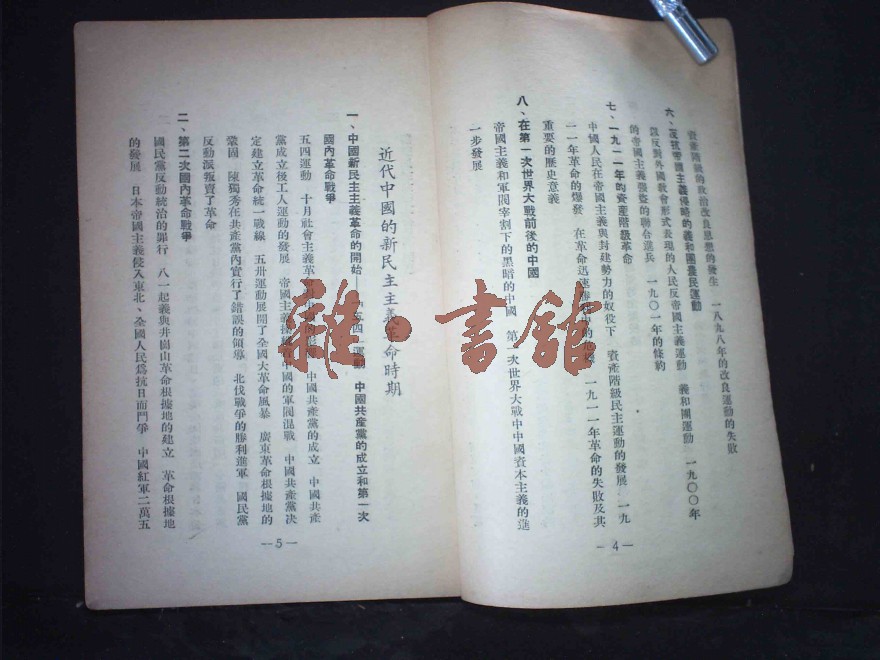 資產階級的政治改良思想的發生　一八九八年的改良運動的失敗
六、反抗帝國主義侵略的義和團農民運動
反對外國教會形式表現的人民反帝國主義運動　義和團運動　一九〇〇年
的帝國主義強盜的聯合進兵　一九〇一年的條約
七、一九一一年的資產階級革命
中國人民在帝國主義與封建勢力的奴役下　資產階級民主運動的發展　一九
一一年革命的爆發　在革命迅速　一九一一年革命的失敗及其
重要的歷史意義
八、在第一次世界大戰前後的中國
帝國主義和軍閥宰割下的黑暗的中國　第一次世界大戰中中國資本主義的進
一步發展
—4—
近代中國的新民主主義革命時期
一、中國新民主主義革命的開始——五四運動　中國共產黨的成立和第一次
國內革命戰爭
五四運動　十月社會主義革命對中國的影響　中國共產黨的成立　中國共產
黨成立後工人運動的發展　帝國主義　中國的軍閥混戰　中國共產黨決
定建立革命統一戰線　五卅運動展開了全國大革命風暴　廣東革命根據地的
鞏固　陳獨秀在共產黨內實行了錯誤的領導　北伐戰爭的勝利進軍　國民黨
反動派叛賣了革命
二、第二次國內革命戰爭
國民黨反動統治的罪行　八一起義與井崗山革命根據地的建立　革命根據地
的發展　日本帝國主義侵入東北、全國人民爲抗日而鬥爭　中國紅軍二萬五
—5—
雜·書館